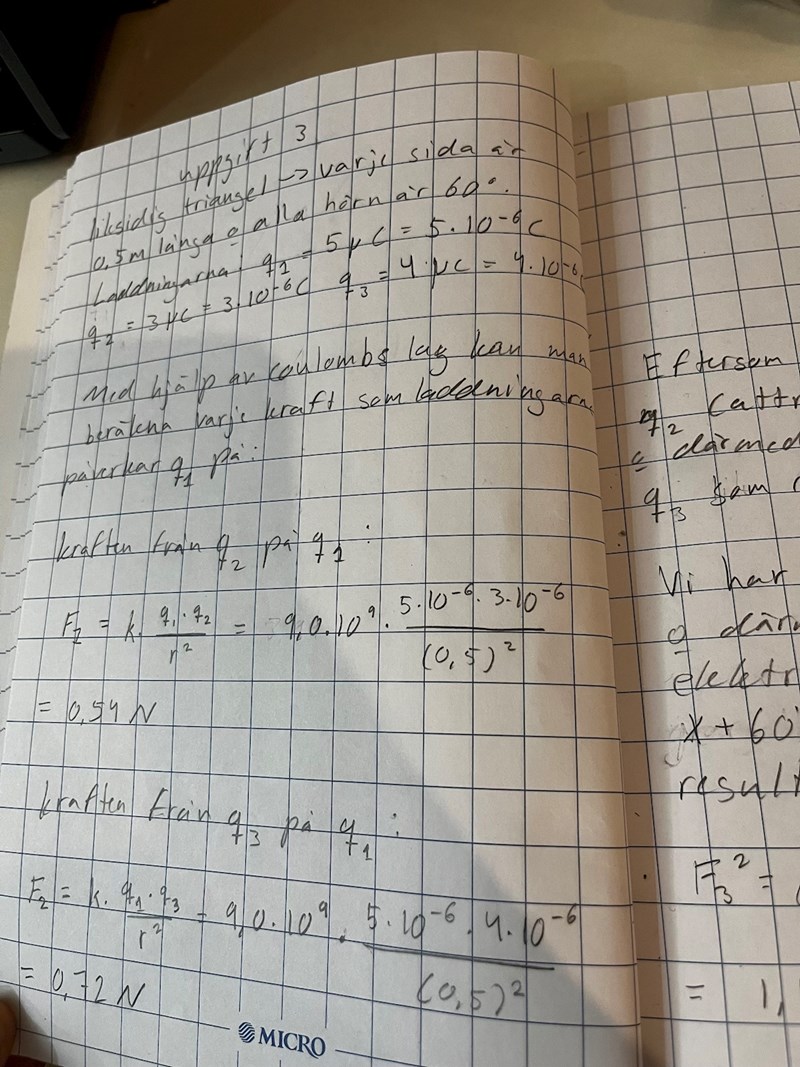 uppgift 3
liksidig triangel -> varje sida är
0,5m långa o alla hörn är 60°.
Laddningarna: q₁ = 5 μC = 5·10⁻⁶C
q₂ = 3μC = 3·10⁻⁶C q₃ = 4·μC = 4·10⁻⁶
Med hjälp av coulombs lag kan man
beräkna varje kraft som laddningarna
påverkar q₁ på:
kraften från q₂ på q₁:
F₂ = k · q₁·q₂ / r² = 9,0·10⁹ · 5·10⁻⁶·3·10⁻⁶ / (0,5)²
= 0,54 N
kraften från q₃ på q₁:
F₂ = k · q₁·q₃ / r² = 9,0·10⁹ · 5·10⁻⁶·4·10⁻⁶ / (0,5)²
= 0,72 N
MICRO
Eftersom
q₂ (attr
o därmed
q₃ som
Vi har
o därm
elektr
x + 60
result
F₃² =
= 1,